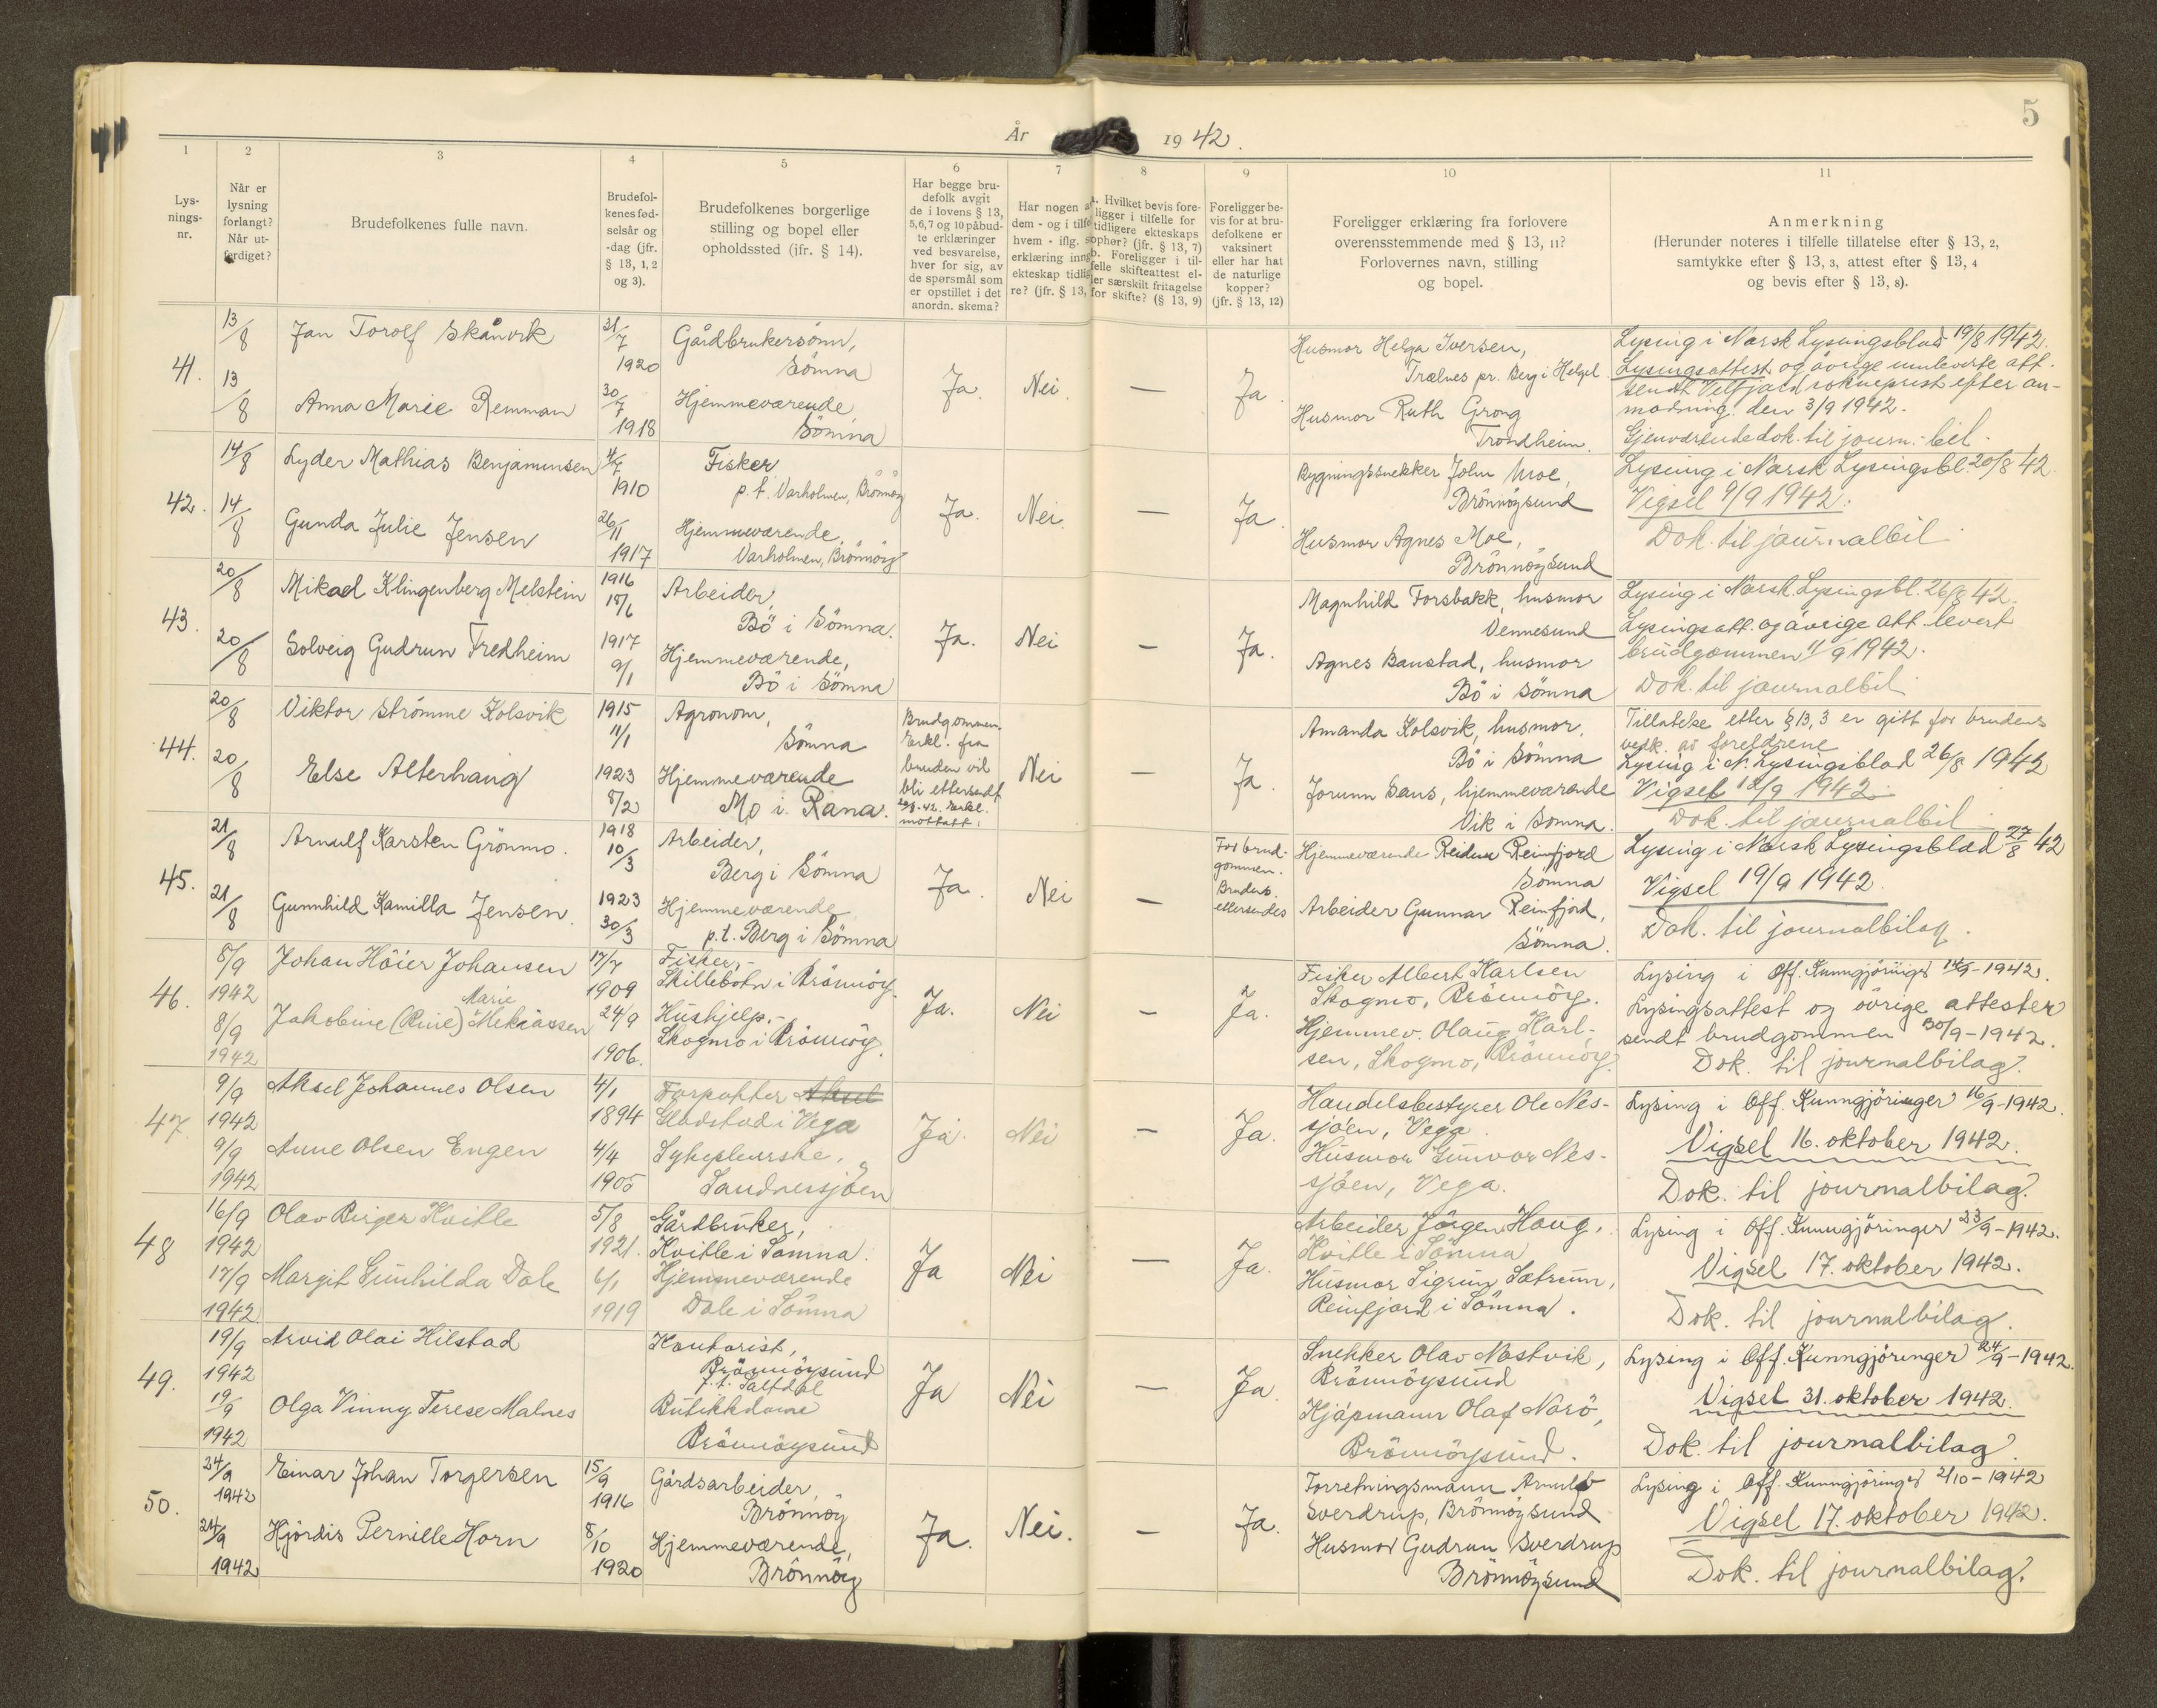 5
År 1942.
1 2 3 4 5 6 7 8 9 10 11
Lys-
nings-
nr.
Når er
lysning
forlangt?
Når ut-
ferdiget?
Brudefolkenes fulle navn.
Brudefol-
kenes fød-
selsår og
-dag (jfr.
§ 13, 1, 2
og 3).
Brudefolkenes borgerlige
stilling og bopel eller
opholdssted (jfr. § 14).
Har begge bru-
defolk avgit
de i lovens § 13,
5,6,7 og 10 påbud-
te erklæringer
ved besvarelse,
hver for sig, av
de spørsmål som
er opstillet i det
anordn. skema?
Har nogen a
dem - og i tilfe
hvem - iflg. s
erklæring inng
ekteskap tidlig
re? (jfr. § 13,
a. Hvilket bevis fore-
ligger i tilfelle for
tidligere ekteskaps
ophør? (jfr. § 13, 7)
b. Foreligger i til-
felle skifteattest el-
ler særskilt fritagelse
for skifte? (§ 13, 9)
Foreligger be-
vis for at bru-
defolkene er
vaksinert
eller har hat
de naturlige
kopper?
(jfr. § 13, 12)
Foreligger erklæring fra forlovere
overensstemmende med § 13, 11?
Forlovernes navn, stilling
og bopel.
Anmerkning
(Herunder noteres i tilfelle tillatelse efter § 13, 2,
samtykke efter § 13, 3, attest efter § 13, 4
og bevis efter § 13, 8).
41.
13/8
Jan Torolf Skånvik
31/7
1920
Gårdbrukersønn,
Sömna
13/8
Anna Marie Remman
30/7
1918
Hjemmeværende,
Sömna
Ja.
Nei.
—
Ja.
Husmor Helga Iversen,
Trælnes pr. Berg i Helgel.
Husmor Ruth Grong
Trondheim.
Lysing i Norsk Lysingsblad 19/8 1942.
Lysingsattest og övrige innleverte att.
sendt Velfjord sokneprest efter an-
modning den 3/9 1942.
Gjenværende dok. til journ. bil.
42.
14/8
Lyder Mathias Benjaminsen
4/7
1910
Fisker
p.t. Varholmen, Brönnöy
14/8
Gunda Julie Jensen
26/11
1917
Hjemmeværende,
Varholmen, Brönnöy
Ja.
Nei.
—
Ja
Bygningssnekker John Moe,
Brönnöysund
Husmor Agnes Moe,
Brönnöysund
Lysing i Norsk Lysingsbl. 20/8 42.
Vigsel 9/9 1942.
Dok. til journalbil.
43.
20/8
Mikael Klingenberg Melstein
1916
Arbeider,
Bö i Sömna.
20/8
Solveig Gudrun Fredheim
1917
9/1
Hjemmeværende,
Bö i Sömna
Ja.
Nei
—
Ja.
Magnhild Forsbakk, husmor
Vennesund
Agnes Baustad, husmor
Bö i Sömna
Lysing i Norsk Lysingsbl. 26/8 42.
Lysingsatt. og övrige att. levert
brudgommen 11/9 1942.
Dok. til journalbil.
44.
20/8
Viktor Strömme Kolsvik
1915
11/1
Agronom,
Sömna
20/8
Else Alterhaug
1923
8/2
Hjemmeværende
Mo i Rana.
Brudgommen.
Erkl. fra
bruden vil
bli ettersendt
Erkl.
mottatt.
Nei
—
Ja.
Amanda Kolsvik, husmor.
Bö i Sömna
Jorunn Saus, hjemmeværende
Vik i Sömna.
Tillatelse etter § 13, 3 er gitt for brudens
vedk. av foreldrene
Lysing i N. Lysingsblad 26/8 1942
Vigsel 12/9 1942.
Dok. til journalbil.
45.
21/8
Arnulf Karsten Grönmo.
1918
10/3
Arbeider,
Berg i Sömna
21/8
Gunnhild Kamilla Jensen.
1923
30/3
Hjemmeværende
p.t. Berg i Sömna
Ja.
Nei
—
For brud-
gommen.
Brudens
ettersendes
Hjemmeværende Reidun Reinfjord
Sömna
Arbeider Gunnar Reinfjord,
Sömna.
Lysing i Norsk Lysingsblad 27/8 42
Vigsel 19/9 1942.
Dok. til journalbilag.
46.
8/9
1942
Johan Höier Johansen
17/7
1909
Fisker,-
Skillebotn i Brönnöy.
8/9
1942
Jakobine (Rine) Marie Mekiassen
24/9
1906.
Hushjelp,-
Skogmo i Brönnöy.
Ja.
Nei
—
Ja.
Fisker Albert Karlsen
Skogmo, Brönnöy.
Hjemmev. Olaug Karl-
sen, Skogmo, Brönnöy.
Lysing i Off. Kunngjöringer 14/9-1942.
Lysingsattest og övrige attester
sendt brudgommen 30/9-1942.
Dok. til journalbilag.
47.
9/9
1942
Aksel Johannes Olsen
4/1
1894
Forpakter
Gladstad i Vega
9/9
1942
Anne Olsen Engen
4/4
1905
Sykepleierske,
Sandnessjöen
Ja.
Nei
—
Ja.
Handelsbestyrer Ole Nes-
sjöen, Vega.
Husmor Gunvor Nes-
sjöen, Vega.
Lysing i Off. Kunngjöringer 16/9-1942.
Vigsel 16. oktober 1942.
Dok. til journalbilag.
48
16/9
1942
Olav Birger Kvitle
5/8
1921.
Gårdbruker,
Kvitle i Sömna.
17/9
1942
Margit Gunhilda Dale
6/1
1919
Hjemmeværende
Dale i Sömna
Ja
Nei
—
Ja.
Arbeider Jörgen Haug,
Kvitle i Sömna
Husmor Sigrun Sætrum,
Reinfjord i Sömna.
Lysing i Off. Kunngjöringer 23/9-1942.
Vigsel 17. oktober 1942.
Dok. til journalbilag.
49.
19/9
1942
Arvid Olai Hilstad
Kontorist,
Brönnöysund
p.t. Saltdal
19/9
1942
Olga Vinny Terese Malnes
Butikkdame
Brönnöysund
Ja
Nei
—
Ja.
Snekker Olav Nostvik,
Brönnöysund
Kjöpmann Olaf Norö,
Brönnöysund.
Lysing i Off. Kunngjöringer 24/9-1942.
Vigsel 31. oktober 1942.
Dok. til journalbilag.
50.
24/9
1942
Einar Johan Torgersen
15/9
1916
Gårdsarbeider,
Brönnöy
24/9
1942
Hjördis Pernille Horn
8/10
1920
Hjemmeværende,
Brönnöy
Ja.
Nei.
—
Ja.
Forretningsmann Arnulf
Sverdrup, Brönnöysund
Husmor Gudrun Sverdrup
Brönnöysund
Lysing i Off. Kunngjöringer 2/10-1942
Vigsel 17. oktober 1942.
Dok. til journalbilag.